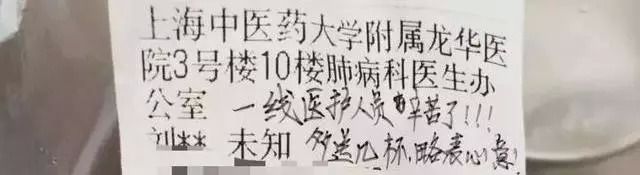 上海中医药大学附属龙华医
院3号楼10楼肺病科医生办
公室 一线医护人员辛苦了!!!
刘** 未知 多送几杯,略表心意!